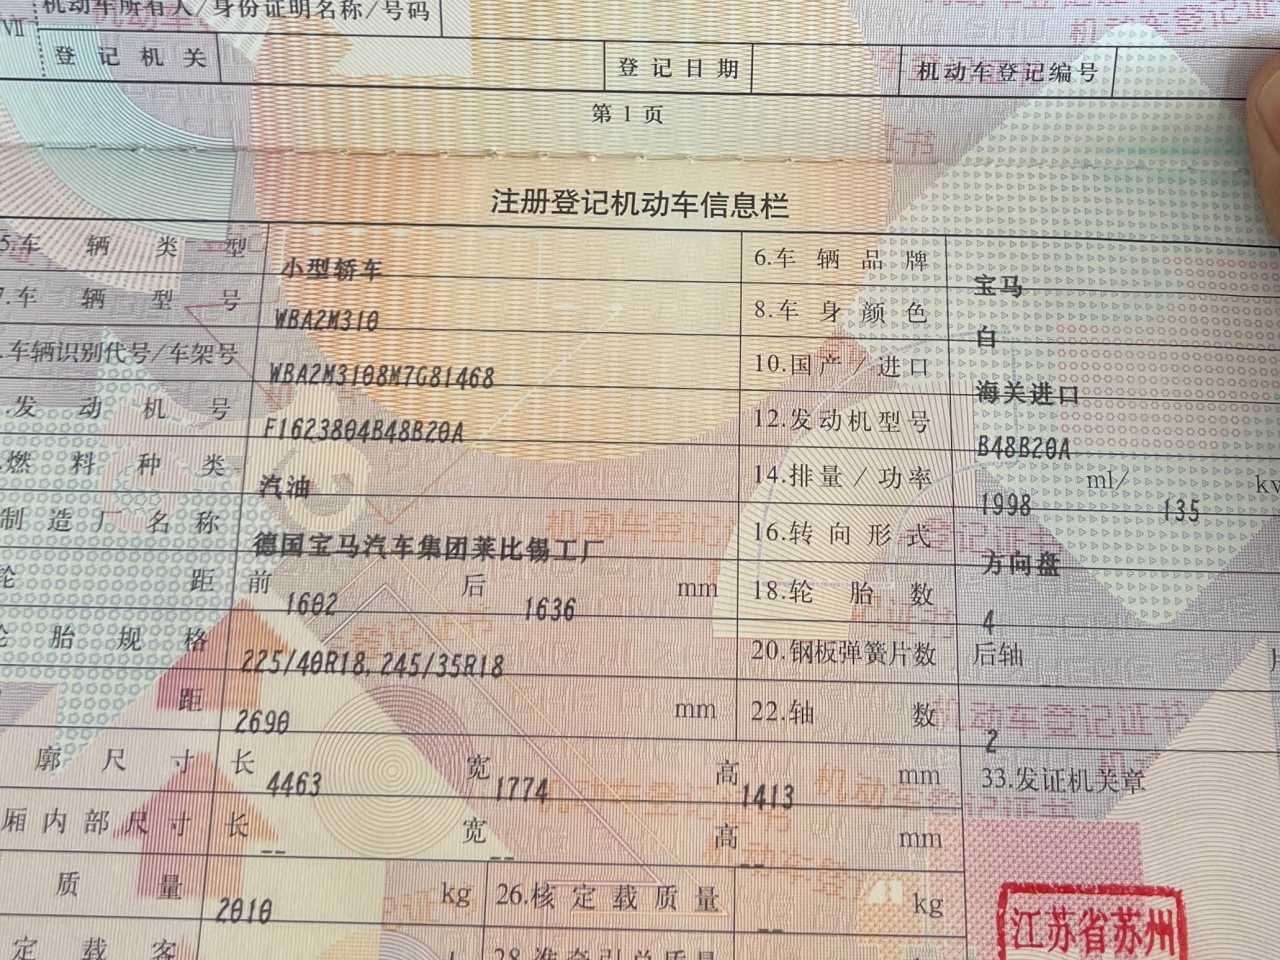 机动车所有人/身份证明名称/号码
Ⅶ 登记机关 登记日期 机动车登记编号
第 1 页
注册登记机动车信息栏
5.车辆类型 小型轿车 6.车辆品牌 宝马
7.车辆型号 WBA2M310 8.车身颜色 白
.车辆识别代号/车架号 WBA2M3108M7G81468 10.国产/进口 海关进口
.发动机号 F1623804B48B20A 12.发动机型号 B48B20A
.燃料种类 汽油 14.排量/功率 1998 ml/ 135 kw
制造厂名称 德国宝马汽车集团莱比锡工厂 16.转向形式 方向盘
轮距 前 1602 后 1636 mm 18.轮胎数 4
轮胎规格 225/40R18,245/35R18 20.钢板弹簧片数 后轴
距 2690 mm 22.轴数 2
廓尺寸 长 4463 宽 1774 高 1413 mm 33.发证机关章
厢内部尺寸 长 -- 宽 -- 高 -- mm
质量 2010 kg 26.核定载质量 -- kg
江苏省苏州
定载客 28.准牵引总质量
机动车登记证书